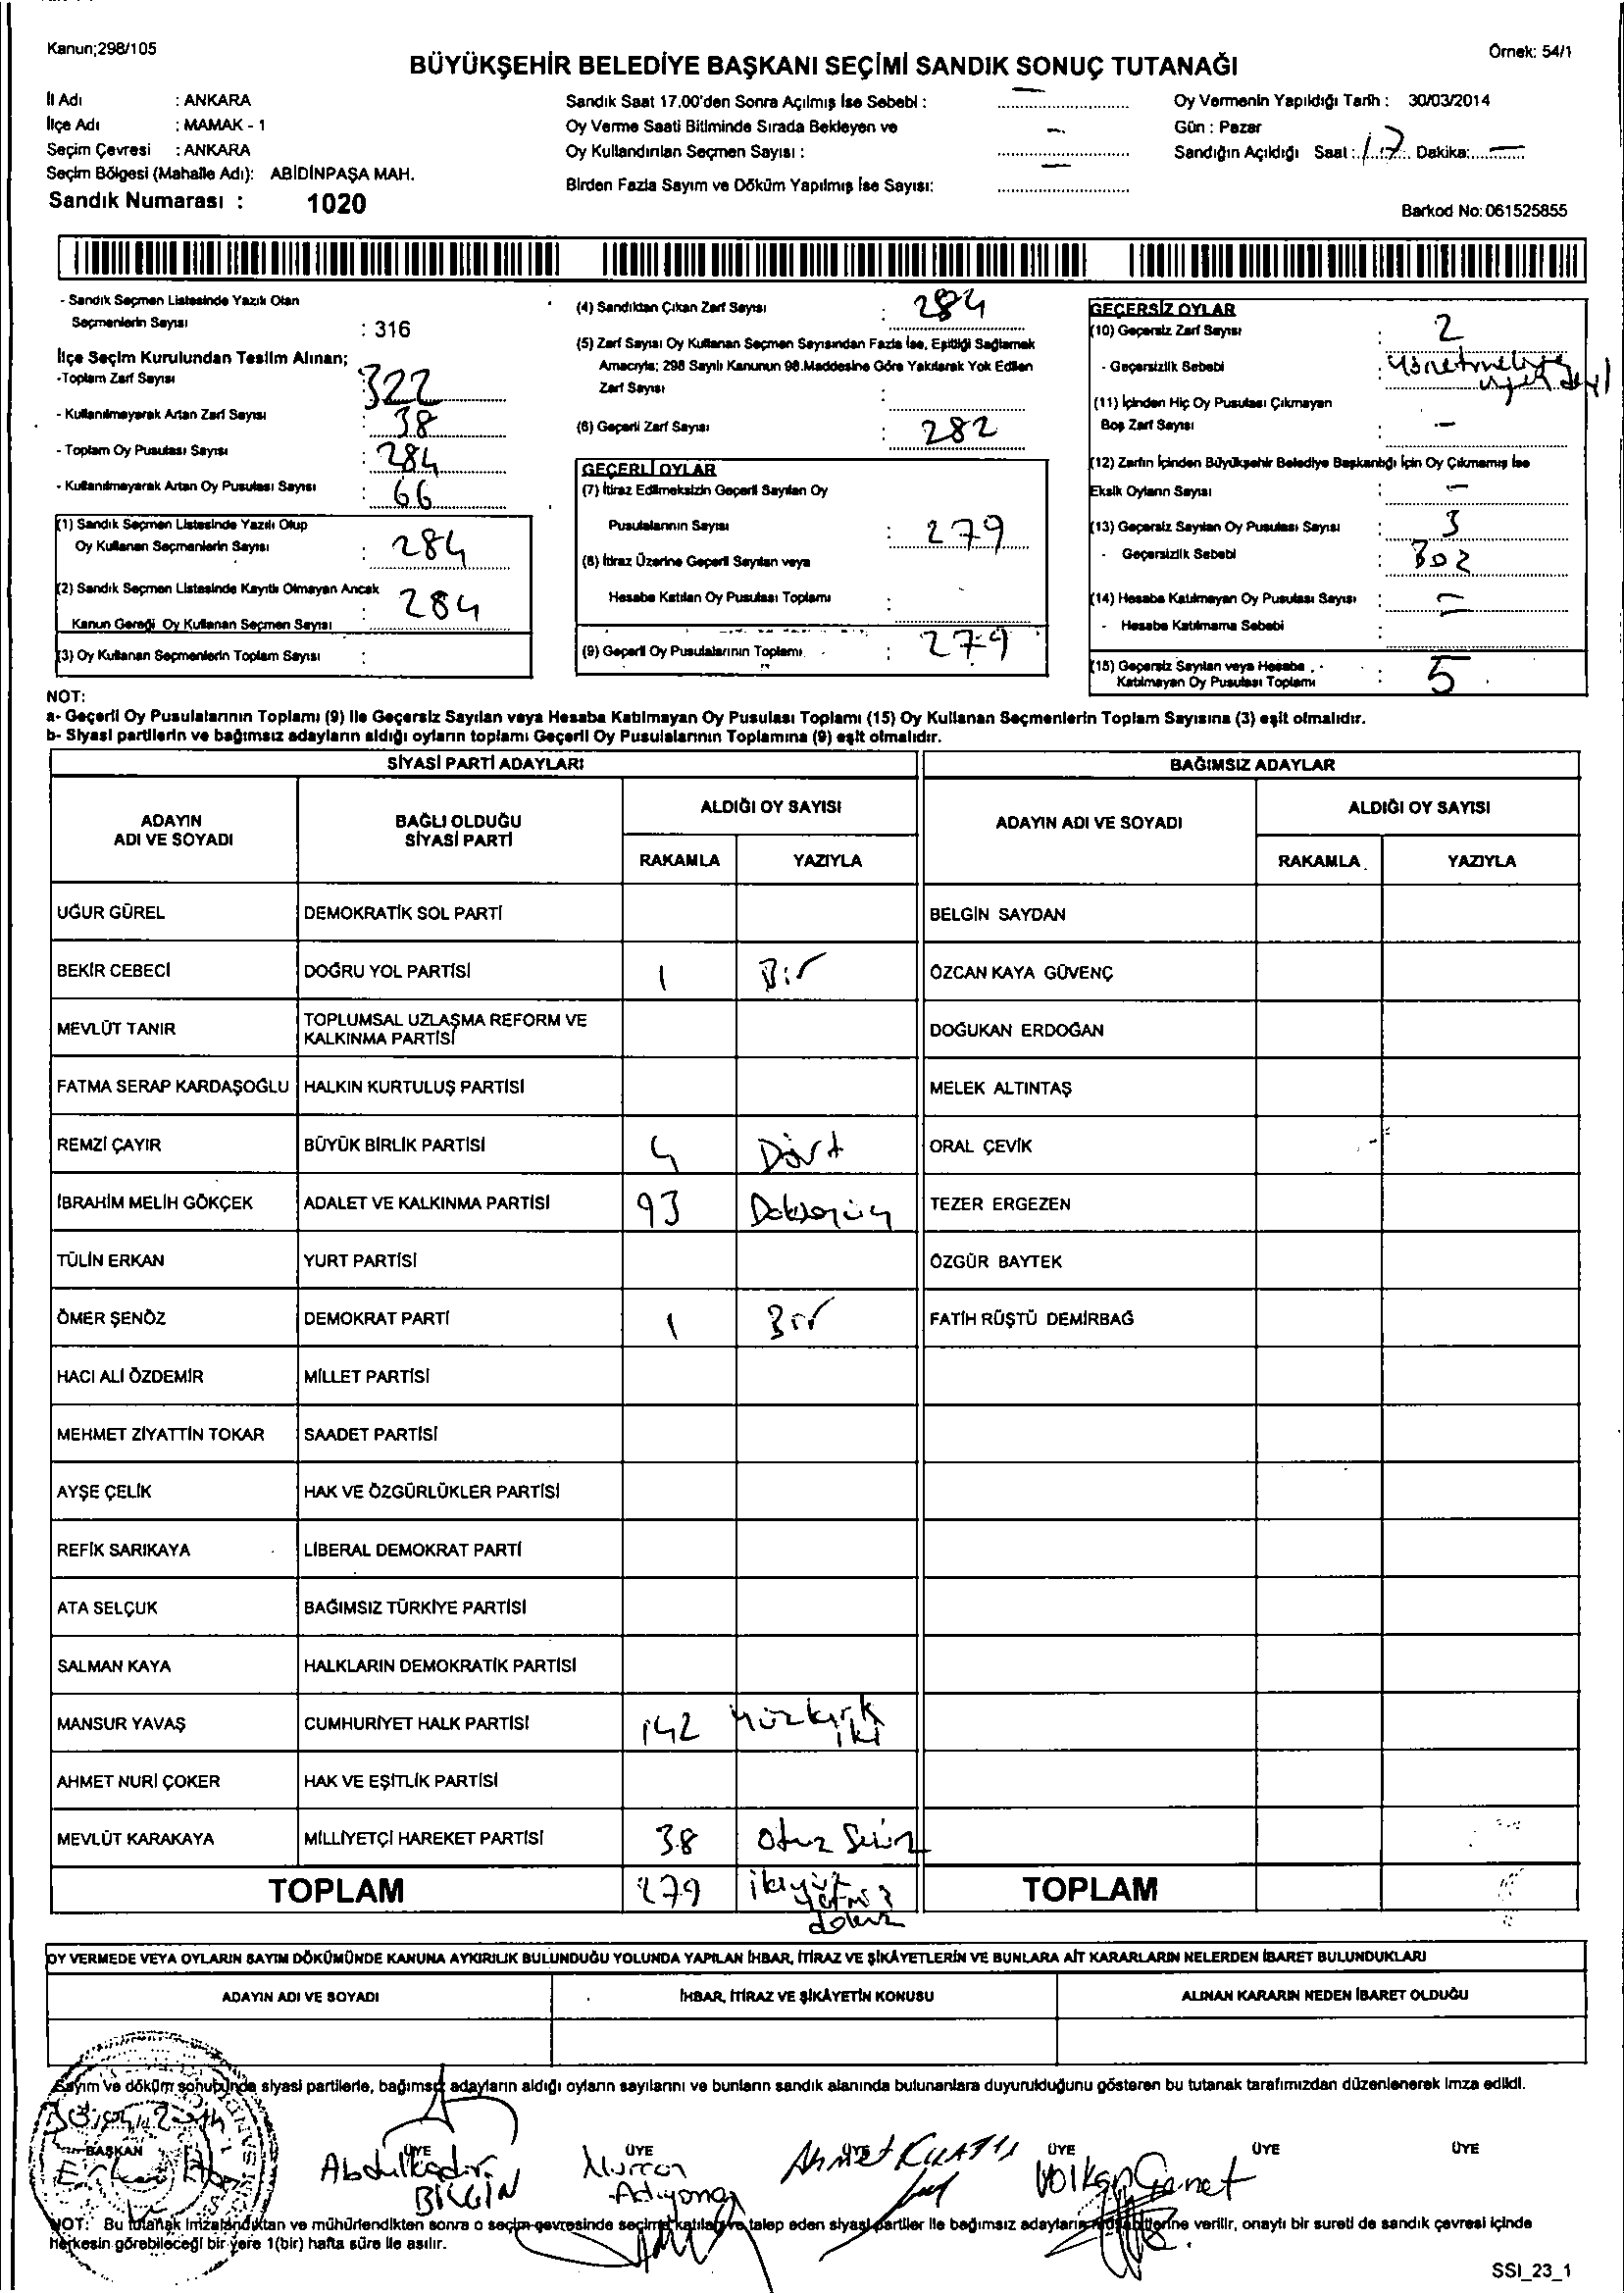 Kanun;298/105
Örnek: 54/1
BÜYÜKŞEHİR BELEDİYE BAŞKANI SEÇİMİ SANDIK SONUÇ TUTANAĞI
İl Adı : ANKARA
İlçe Adı : MAMAK - 1
Seçim Çevresi : ANKARA
Seçim Bölgesi (Mahalle Adı): ABİDİNPAŞA MAH.
Sandık Numarası : 1020
Sandık Saat 17.00'den Sonra Açılmış İse Sebebi : —
Oy Verme Saati Bitiminde Sırada Bekleyen ve
Oy Kullandırılan Seçmen Sayısı : —
Birden Fazla Sayım ve Döküm Yapılmış İse Sayısı: —
Oy Vermenin Yapıldığı Tarih : 30/03/2014
Gün : Pazar
Sandığın Açıldığı Saat : 17 Dakika: —
Barkod No: 061525855
- Sandık Seçmen Listesinde Yazılı Olan
Seçmenlerin Sayısı : 316
İlçe Seçim Kurulundan Teslim Alınan;
-Toplam Zarf Sayısı : 322
- Kullanılmayarak Artan Zarf Sayısı : 38
- Toplam Oy Pusulası Sayısı : 284
- Kullanılmayarak Artan Oy Pusulası Sayısı : 66
(1) Sandık Seçmen Listesinde Yazılı Olup
Oy Kullanan Seçmenlerin Sayısı : 284
(2) Sandık Seçmen Listesinde Kayıtlı Olmayan Ancak
Kanun Gereği Oy Kullanan Seçmen Sayısı : 284
(3) Oy Kullanan Seçmenlerin Toplam Sayısı :
(4) Sandıktan Çıkan Zarf Sayısı : 284
(5) Zarf Sayısı Oy Kullanan Seçmen Sayısından Fazla İse, Eşitliği Sağlamak
Amacıyla; 298 Sayılı Kanunun 98.Maddesine Göre Yakılarak Yok Edilen
Zarf Sayısı :
(6) Geçerli Zarf Sayısı : 282
GEÇERLİ OYLAR
(7) İtiraz Edilmeksizin Geçerli Sayılan Oy
Pusulalarının Sayısı : 279
(8) İtiraz Üzerine Geçerli Sayılan veya
Hesaba Katılan Oy Pusulası Toplamı :
(9) Geçerli Oy Pusulalarının Toplamı : 279
GEÇERSİZ OYLAR
(10) Geçersiz Zarf Sayısı : 2
- Geçersizlik Sebebi : yönetmeliğe
uygun değil
(11) İçinden Hiç Oy Pusulası Çıkmayan
Boş Zarf Sayısı : —
(12) Zarfın İçinden Büyükşehir Belediye Başkanlığı İçin Oy Çıkmamış İse
Eksik Oyların Sayısı : —
(13) Geçersiz Sayılan Oy Pusulası Sayısı : 3
- Geçersizlik Sebebi :
(14) Hesaba Katılmayan Oy Pusulası Sayısı : —
- Hesaba Katılmama Sebebi : —
(15) Geçersiz Sayılan veya Hesaba
Katılmayan Oy Pusulası Toplamı : 5
NOT:
a- Geçerli Oy Pusulalarının Toplamı (9) İle Geçersiz Sayılan veya Hesaba Katılmayan Oy Pusulası Toplamı (15) Oy Kullanan Seçmenlerin Toplam Sayısına (3) eşit olmalıdır.
b- Siyasi partilerin ve bağımsız adayların aldığı oyların toplamı Geçerli Oy Pusulalarının Toplamına (9) eşit olmalıdır.
SİYASİ PARTİ ADAYLARI
BAĞIMSIZ ADAYLAR
ADAYIN
ADI VE SOYADI
BAĞLI OLDUĞU
SİYASİ PARTİ
ALDIĞI OY SAYISI
RAKAMLA YAZIYLA
ADAYIN ADI VE SOYADI
ALDIĞI OY SAYISI
RAKAMLA YAZIYLA
UĞUR GÜREL DEMOKRATİK SOL PARTİ BELGİN SAYDAN
BEKİR CEBECİ DOĞRU YOL PARTİSİ 1 Bir ÖZCAN KAYA GÜVENÇ
MEVLÜT TANIR TOPLUMSAL UZLAŞMA REFORM VE
KALKINMA PARTİSİ DOĞUKAN ERDOĞAN
FATMA SERAP KARDAŞOĞLU HALKIN KURTULUŞ PARTİSİ MELEK ALTINTAŞ
REMZİ ÇAYIR BÜYÜK BİRLİK PARTİSİ 4 Dört ORAL ÇEVİK
İBRAHİM MELİH GÖKÇEK ADALET VE KALKINMA PARTİSİ 93 Doksanüç TEZER ERGEZEN
TÜLİN ERKAN YURT PARTİSİ ÖZGÜR BAYTEK
ÖMER ŞENÖZ DEMOKRAT PARTİ 1 Bir FATİH RÜŞTÜ DEMİRBAĞ
HACI ALİ ÖZDEMİR MİLLET PARTİSİ
MEHMET ZİYATTİN TOKAR SAADET PARTİSİ
AYŞE ÇELİK HAK VE ÖZGÜRLÜKLER PARTİSİ
REFİK SARIKAYA LİBERAL DEMOKRAT PARTİ
ATA SELÇUK BAĞIMSIZ TÜRKİYE PARTİSİ
SALMAN KAYA HALKLARIN DEMOKRATİK PARTİSİ
MANSUR YAVAŞ CUMHURİYET HALK PARTİSİ 142 Yüzkırk
iki
AHMET NURİ ÇOKER HAK VE EŞİTLİK PARTİSİ
MEVLÜT KARAKAYA MİLLİYETÇİ HAREKET PARTİSİ 38 Otuz Sekiz
TOPLAM 279 ikiyüz
yetmiş
dokuz
TOPLAM
OY VERMEDE VEYA OYLARIN SAYIM DÖKÜMÜNDE KANUNA AYKIRILIK BULUNDUĞU YOLUNDA YAPILAN İHBAR, İTİRAZ VE ŞİKÂYETLERİN VE BUNLARA AİT KARARLARIN NELERDEN İBARET BULUNDUKLARI
ADAYIN ADI VE SOYADI İHBAR, İTİRAZ VE ŞİKÂYETİN KONUSU ALINAN KARARIN NEDEN İBARET OLDUĞU
Sayım ve döküm sonucunda siyasi partilerle, bağımsız adayların aldığı oyların sayılarını ve bunların sandık alanında bulunanlara duyurulduğunu gösteren bu tutanak tarafımızdan düzenlenerek imza edildi.
BAŞKAN ÜYE ÜYE ÜYE ÜYE ÜYE ÜYE
Abdulkadir
BİLGİN
Ahmet
Volkan
NOT: Bu tutanak imzalandıktan ve mühürlendikten sonra o seçim çevresinde seçime katılan ve talep eden siyasi partiler ile bağımsız adayların müşahitlerine verilir, onaylı bir sureti de sandık çevresi içinde
herkesin görebileceği bir yere 1(bir) hafta süre ile asılır.
SSI_23_1